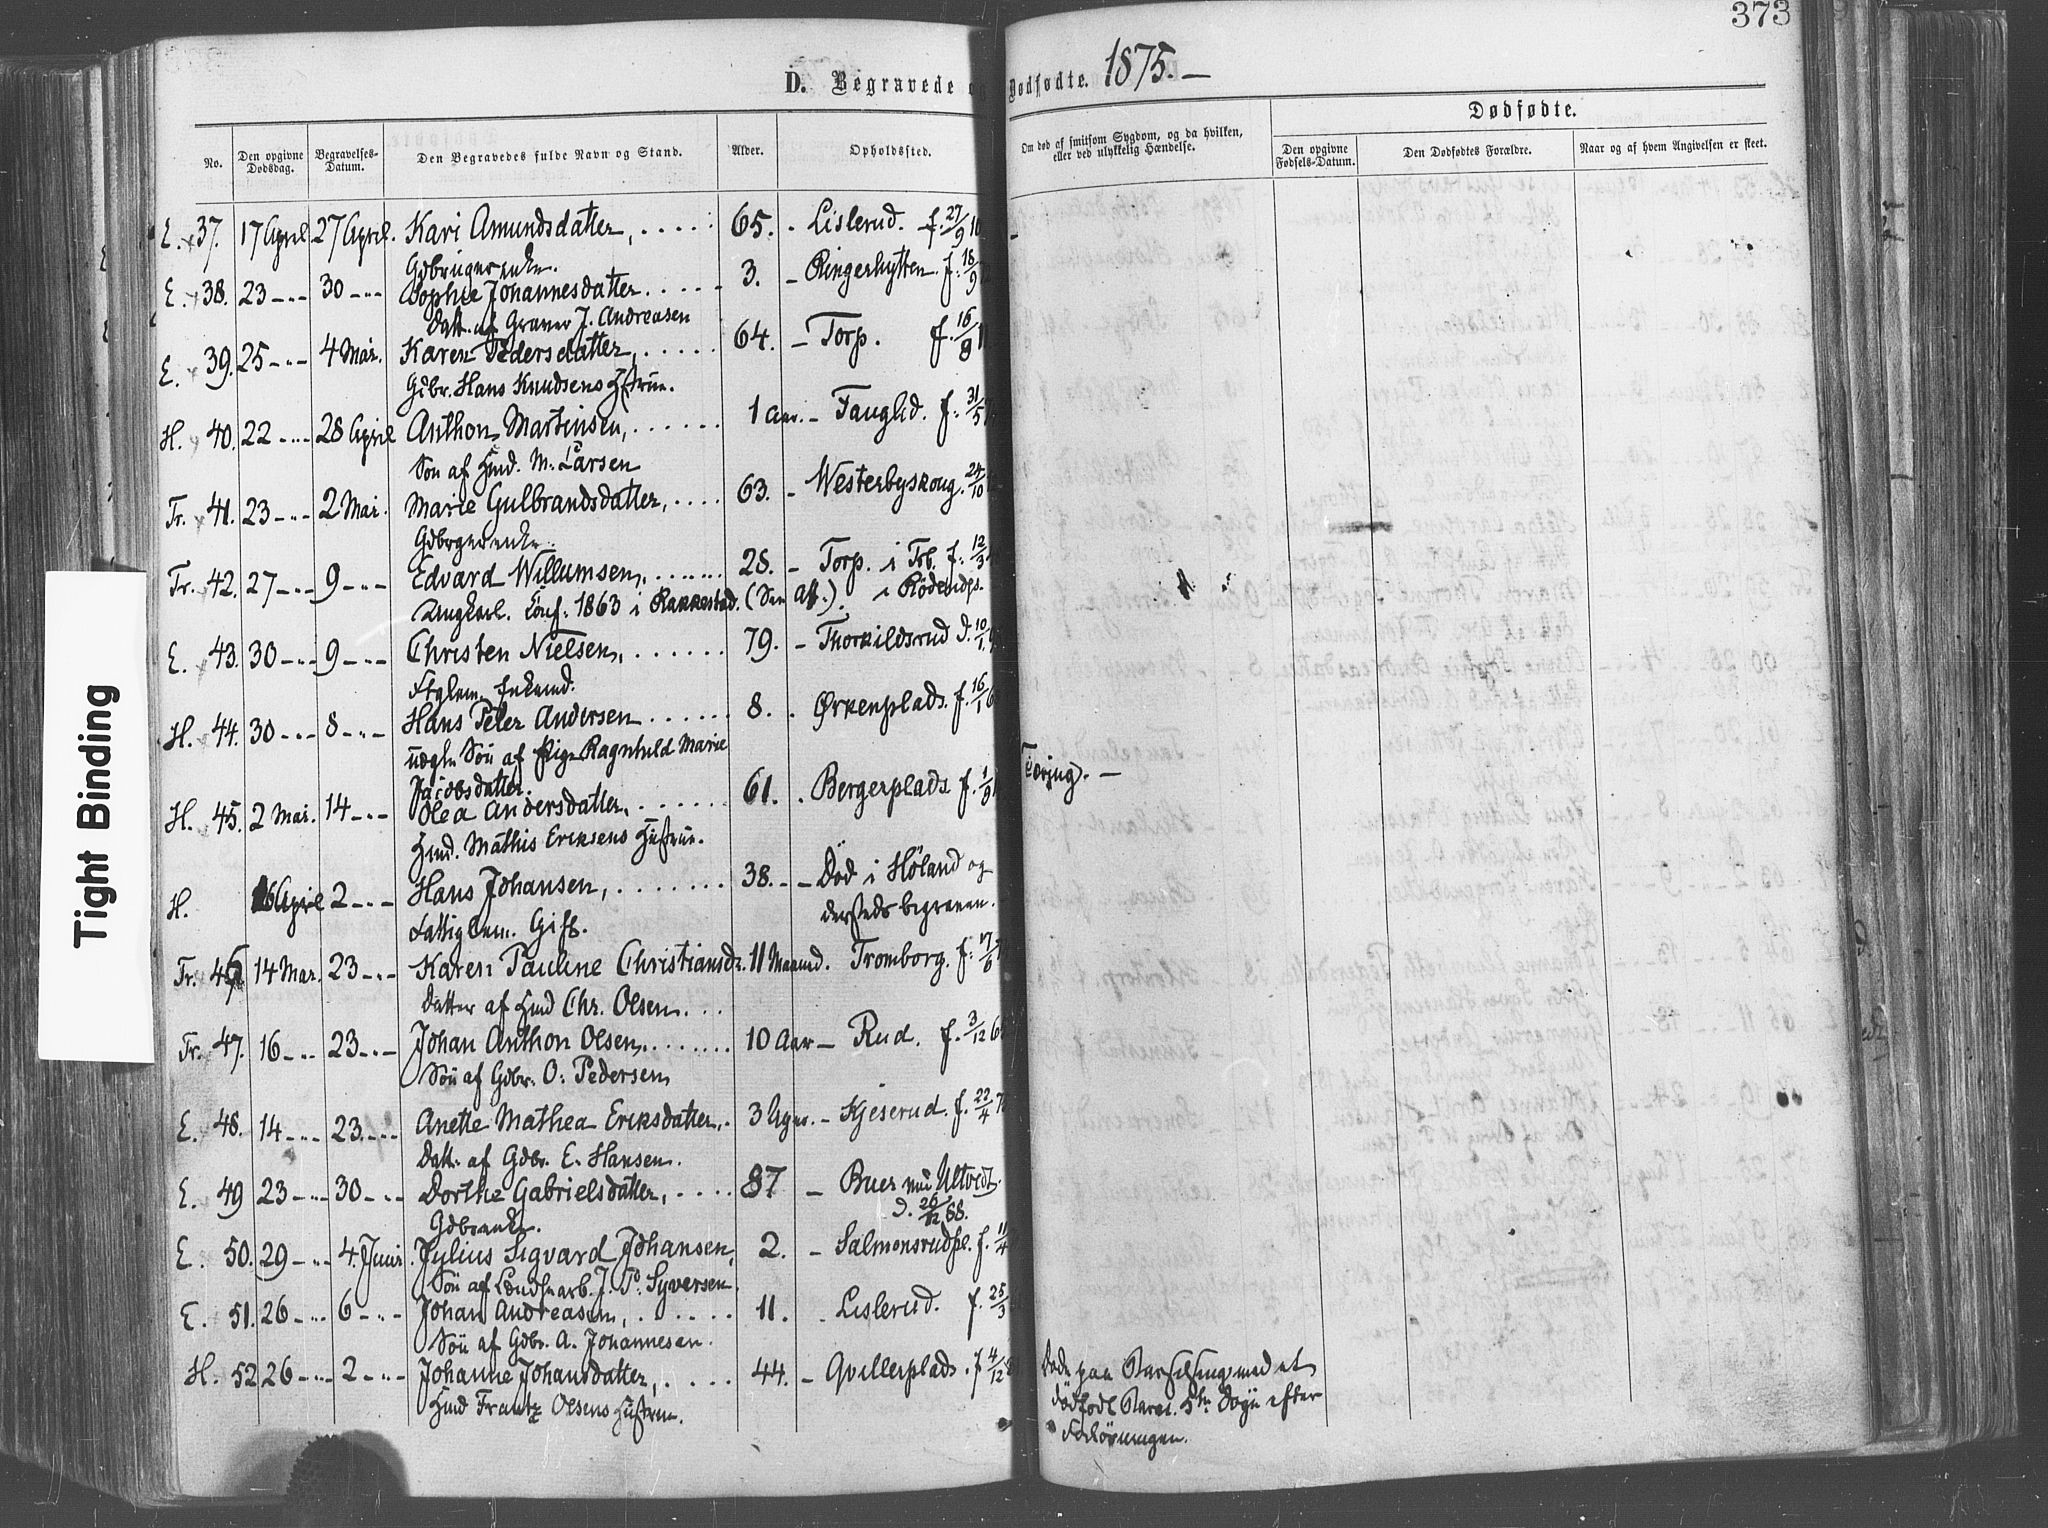 373
D. Begravede og Dødfødte. 1875.—
No. Den opgivne Dødsdag. Begravelses-Datum. Den Begravedes fulde Navn og Stand. Alder. Opholdssted. Om død af smitsom Sygdom, og da hvilken, eller ved ulykkelig Hændelse. Dødfødte.
Den opgivne Fødsels-Datum. Den Dødfødtes Forældre. Naar og af hvem Angivelsen er skeet.
E. 37. 17 April 27 April. Kari Amundsdatter, 65. - Lislerud. f. 27/9
Gdbrugerenke.
E. 38. 23 -"- 30 -"- Sophie Johannesdatter 3. - Ringerhytten. f. 18/9
Datt. af Graver J. Andreasen
E. 39. 25 -"- 4 Mai. Karen Pedersdatter, 64. - Torp. f. 16/8
Gdbr. Hans Knudsens Hstru.
H. 40. 22 -"- 28 April Anthon Martinsen, 1 Aar. - Fauglid. f. 31/5
Søn af Hmd. M. Larsen
Tr. 41. 23 -"- 2 Mai. Marie Gulbrandsdatter, 63. - Westerbyskoug. 24/10
Gdbrgerenke.
Tr. 42. 27 -"- 9 -"- Edvard Willumsen, 28. - Torp. i Trb. f. 12/3
Ungkarl. Conf. 1863 i Rakkestad. (See Att.) i Rødenæs.
E. 43. 30 -"- 9 -"- Christen Nielsen, 79. - Thorkildsrud d. 10/1
Ftglem. Enkemd.
H. 44. 30 -"- 8 -"- Hans Peter Andersen 8. Ørkenplads. f. 16/1
uægte Søn af Pige Ragnhild Marie
Jacobsdatter.
H. 45. 2 Mai. 14 -"- Olea Andersdatter, 61. Bergerplads f. 1/9 Tæring. —
Hmd. Mathis Eriksens Hustru.
H. 16 April 2 -"- Hans Johansen, 38. - Død i Høland og
Fattiglem. Gift. dersteds begraven.
Tr. 46. 14 Mai. 23 -"- Karen Pauline Christiansd. 11 Maaned. Tromborg. f. 17/6
Datter af Hmd Chr. Olsen.
Tr. 47. 16 -"- 23 -"- Johan Anthon Olsen, 10 Aar - Rud. f. 3/12 6
Søn af Gdbr. O. Pedersen
E. 48. 14 -"- 23 -"- Anette Mathea Eriksdatter, 3 Uger. - Kjeserud. f. 22/4 7
Datt. af Gdbr. E. Hansen.
E. 49 23 -"- 30 -"- Dorthe Gabrielsdatter, 87 - Buer med Ultvedt.
Gdbrenke. d. 26/12 88.
E. 50. 29 -"- 4 Juni. Julius Sigvard Johansen, 2. - Salmonsrudpl. f. 11/4
Søn af Landharb. J. P. Syversen.
E. 51. 26 -"- 6 -"- Johan Andreasen, 11. Lislerud. f. 25/3
Søn af Gdbr. A. Johannesen.
H. 52 26 -"- 2 -"- Johanne Johansdatter, 44. - Qvillerplads. f 4/12
Hmd Frantz Olsens Hustru.
Døde paa Barselseng med et
dødfødt Barn. 5te Døgn efter
Forløsningen.
Tight Binding